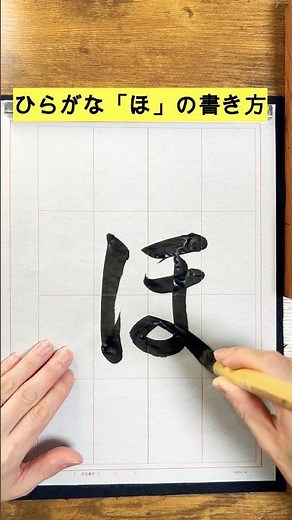 ひらがな「ほ」の書き方
ほ